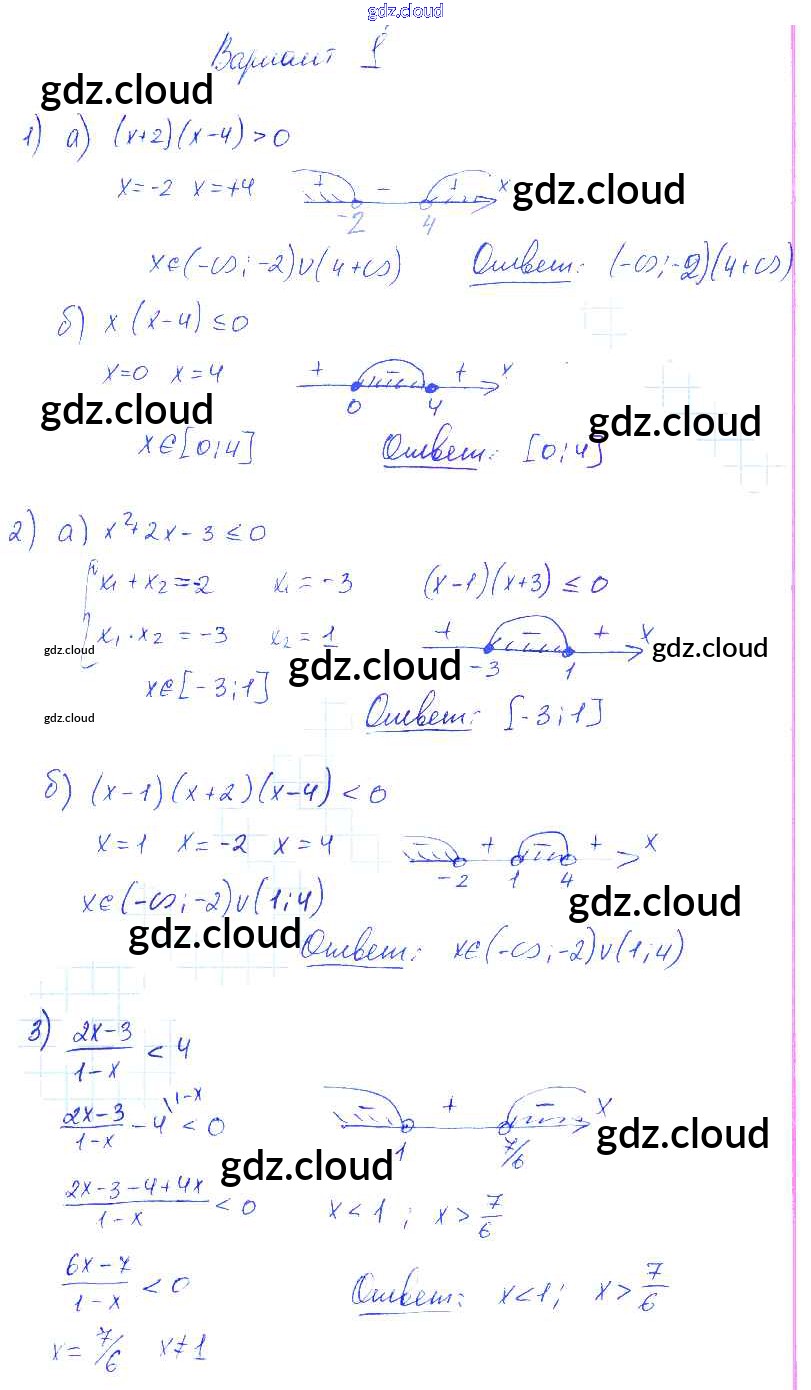 gdz.cloud
Вариант 1
gdz.cloud
1) а) (x+2)(x-4)>0
x=-2 x=+4 + - + x
-2 4
gdz.cloud
x∈(-∞;-2)∪(4+∞) Ответ: (-∞;-2)(4+∞)
б) x(x-4)≤0
x=0 x=4 + - + x
0 4
gdz.cloud gdz.cloud
x∈[0;4] Ответ: [0;4]
2) а) x²+2x-3≤0
x₁+x₂=-2 x₁=-3 (x-1)(x+3)≤0
x₁·x₂=-3 x₂=1 + - + x
-3 1
gdz.cloud gdz.cloud gdz.cloud
x∈[-3;1]
gdz.cloud Ответ: [-3;1]
б) (x-1)(x+2)(x-4)<0
x=1 x=-2 x=4 + - + x
-2 1 4
x∈(-∞;-2)∪(1;4) gdz.cloud
gdz.cloud Ответ: x∈(-∞;-2)∪(1;4)
3) (2x-3)/(1-x) < 4
(2x-3)/(1-x) - 4\1-x < 0 - + - x
1 7/6
gdz.cloud
gdz.cloud
(2x-3-4+4x)/(1-x) < 0 x<1; x>7/6
(6x-7)/(1-x) < 0 Ответ: x<1; x>7/6
x=7/6 x≠1